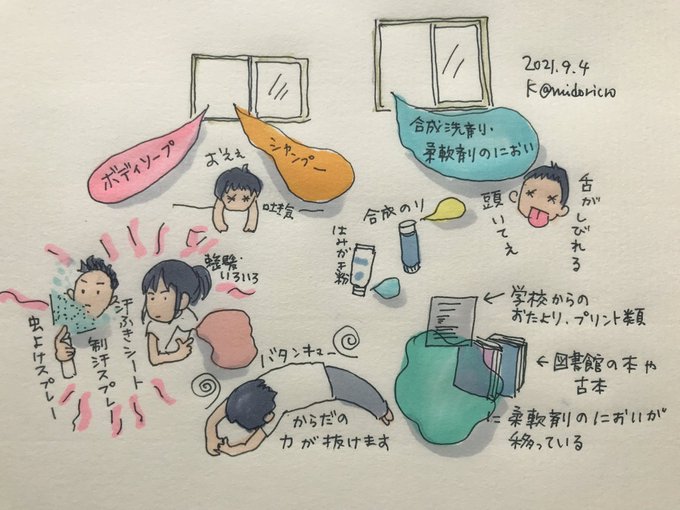 2021.9.4
K@midoricro
ボディソープ
シャンプー
合成洗剤・
柔軟剤のにおい
おええ
吐き気
舌がしびれる
頭いてえ
合成のり
はみがき粉
いろいろ
汗ふきシート
制汗スプレー
虫よけスプレー
バタンキュー
からだの
力が抜けます
学校からの
おたより、プリント類
図書館の本や
古本
柔軟剤のにおいが
移っている